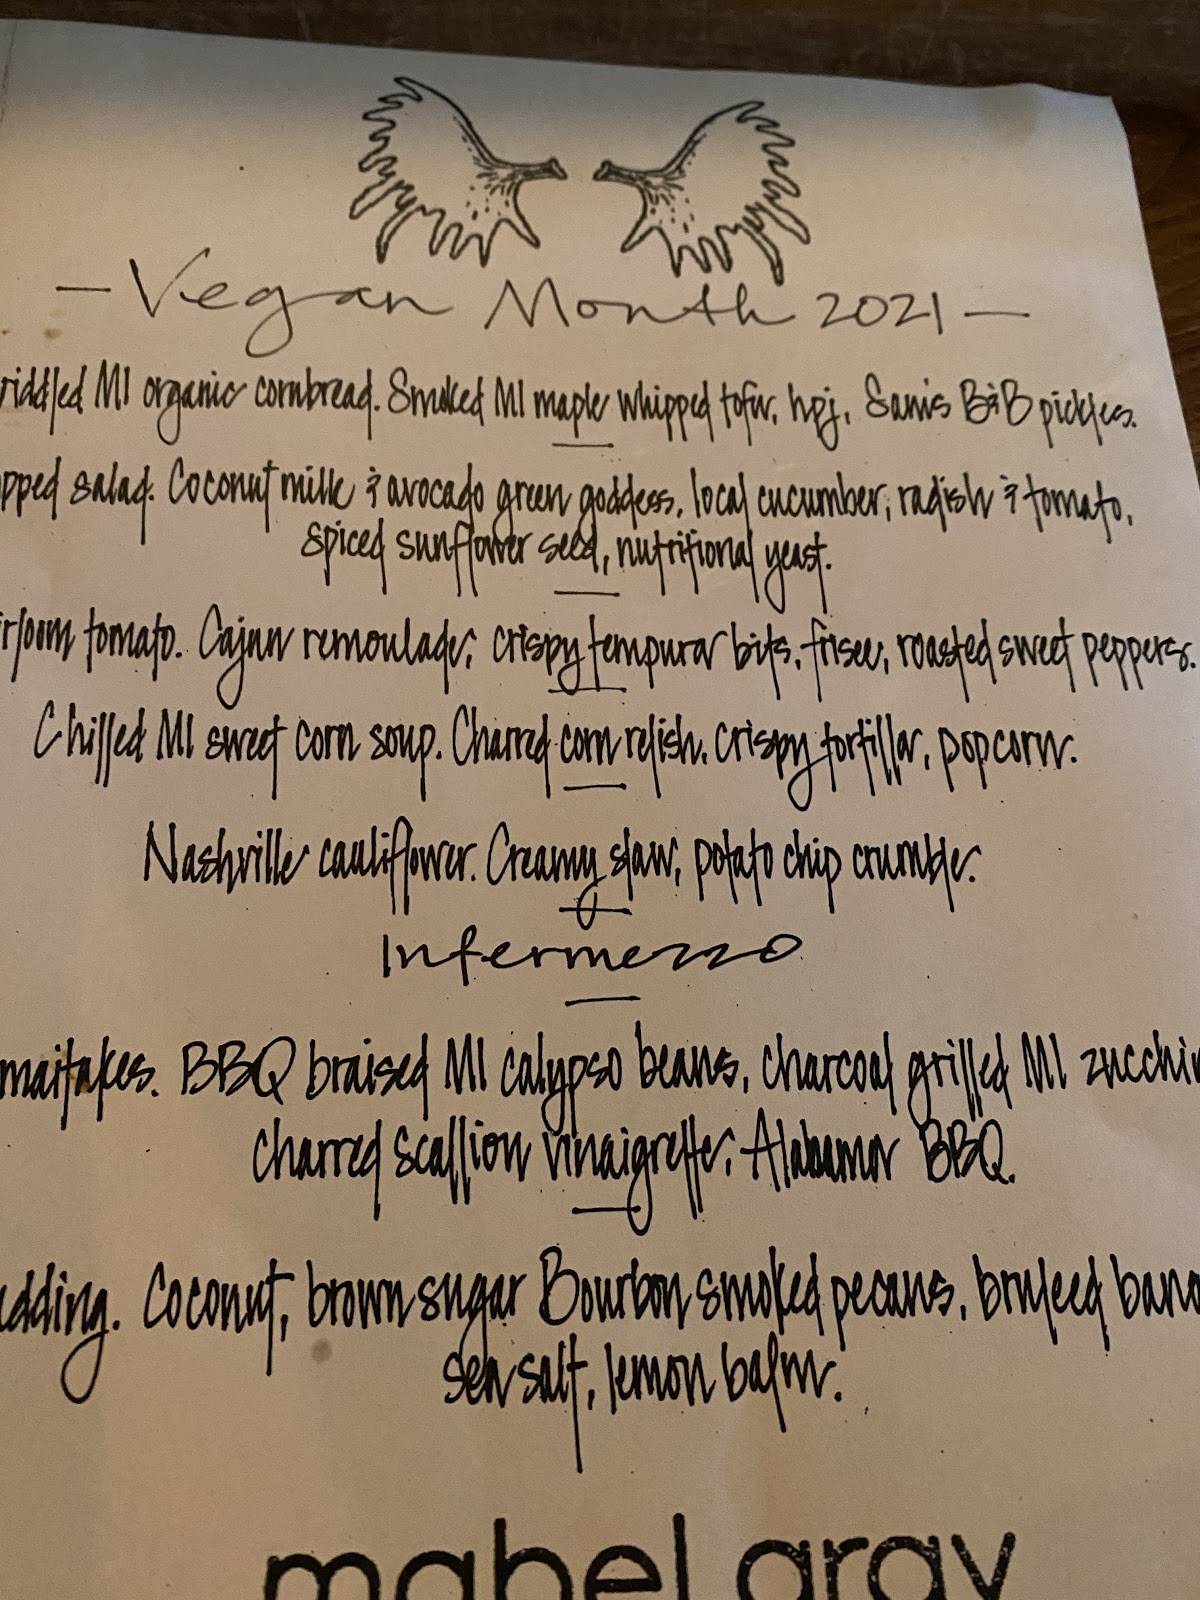 - Vegan Month 2021 -
riddled MI organic cornbread. Smoked MI maple whipped tofu, hpj, Sam's B&B pickles.
pped salad. Coconut milk & avocado green goddess, local cucumber, radish & tomato,
spiced sunflower seed, nutritional yeast.
rloom tomato. Cajun remoulade, crispy tempura bits, frisee, roasted sweet peppers.
Chilled MI sweet corn soup. Charred corn relish, crispy tortilla, popcorn.
Nashville cauliflower. Creamy slaw, potato chip crumble.
Intermezzo
maitakes. BBQ braised MI calypso beans, charcoal grilled MI zucchin
charred scallion vinaigrette, Alabama BBQ.
dding. Coconut, brown sugar Bourbon smoked pecans, bruleed bana
sea salt, lemon balm.
mabel gray